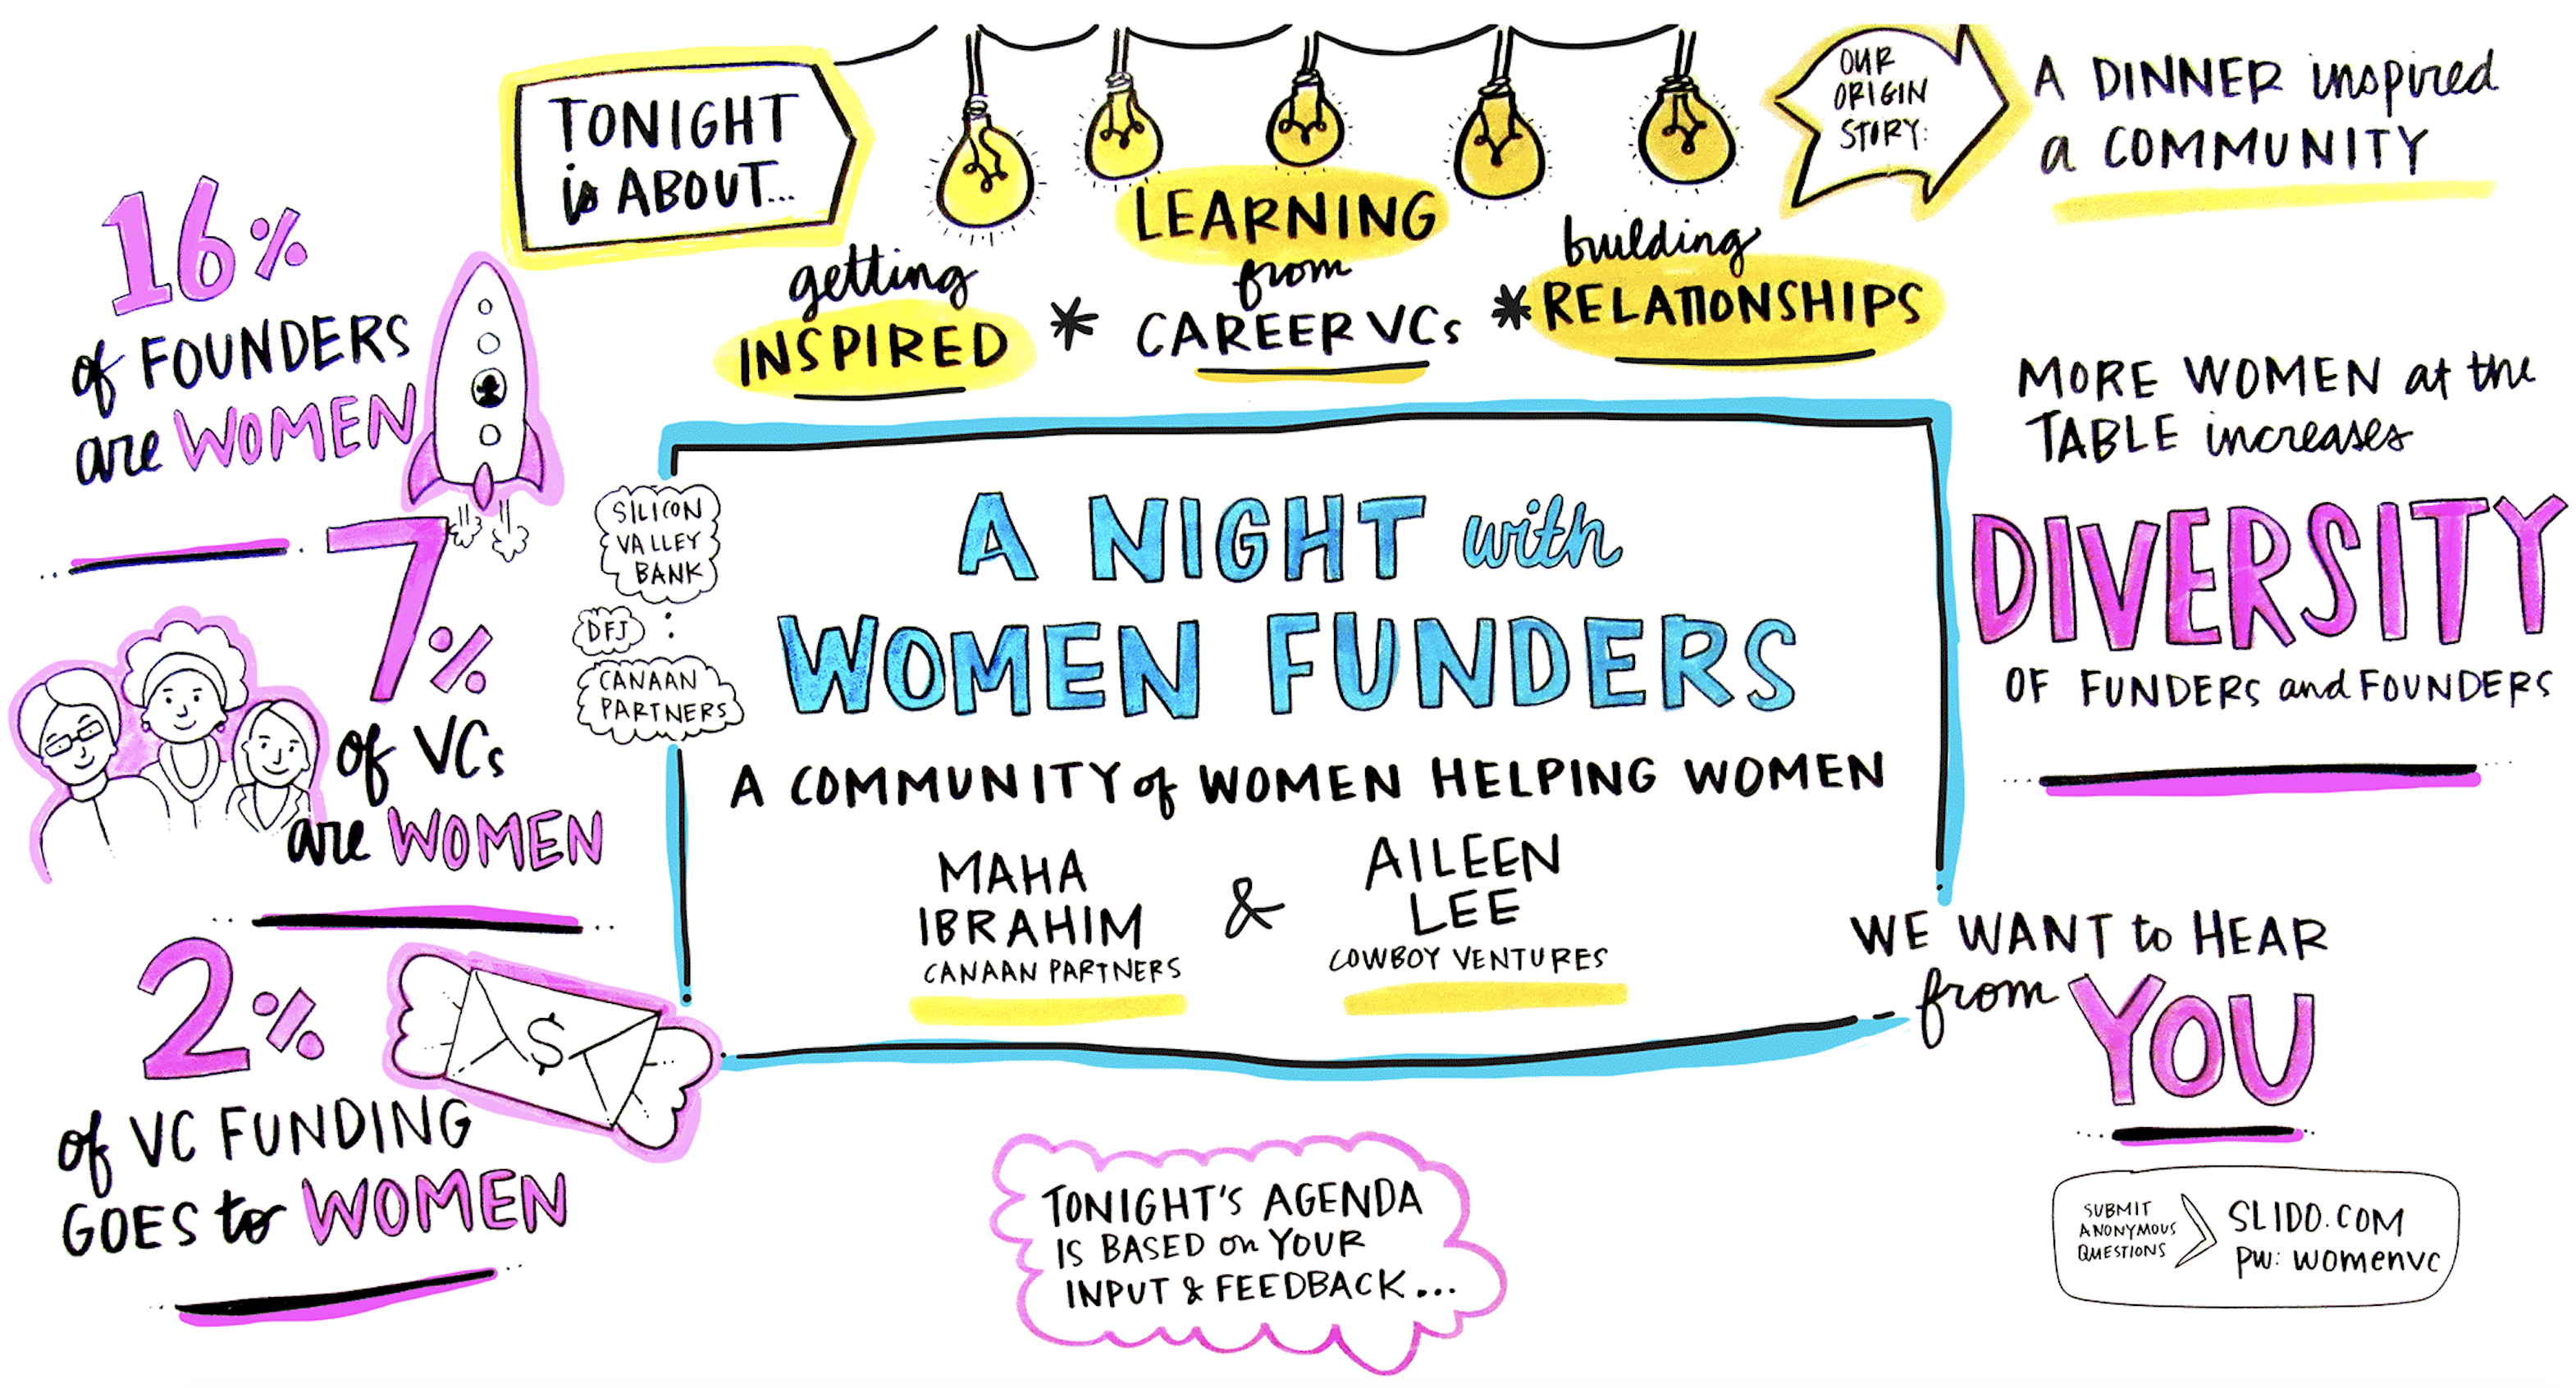 TONIGHT
is ABOUT...
getting
INSPIRED
*
LEARNING
from
CAREER VCs
*
building
RELATIONSHIPS
OUR
ORIGIN
STORY:
A DINNER inspired
a COMMUNITY
16%
of FOUNDERS
are WOMEN
7%
of VCs
are WOMEN
2%
of VC FUNDING
GOES to WOMEN
$
SILICON
VALLEY
BANK
DFJ
CANAAN
PARTNERS
A NIGHT with
WOMEN FUNDERS
A COMMUNITY of WOMEN HELPING WOMEN
MAHA
IBRAHIM
CANAAN PARTNERS
&
AILEEN
LEE
COWBOY VENTURES
MORE WOMEN at the
TABLE increases
DIVERSITY
OF FUNDERS and FOUNDERS
WE WANT to HEAR
from YOU
SUBMIT
ANONYMOUS
QUESTIONS
SLIDO.COM
pw: womenvc
TONIGHT'S AGENDA
IS BASED on YOUR
INPUT & FEEDBACK...